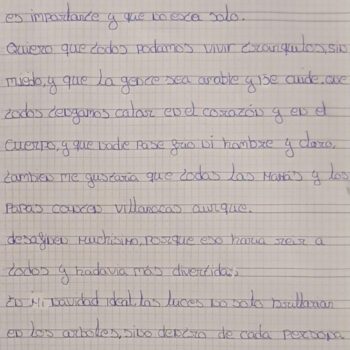 es importante y que no esta solo.
Quiero que todos podamos vivir tranquilos, sin
miedo, y que la gente sea amable y se cuide, que
todos tengamos calor en el corazón y en el
cuerpo, y que nadie pase frio ni hambre y claro,
tambien me gustaria que todas las mamás y los
papas canten villancicos aunque.
desafinen muchisimo, porque eso haria reir a
todos y más divertida,
En mi navidad ideal las luces no solo brillarian
en los arboles, sino dentro de cada persona